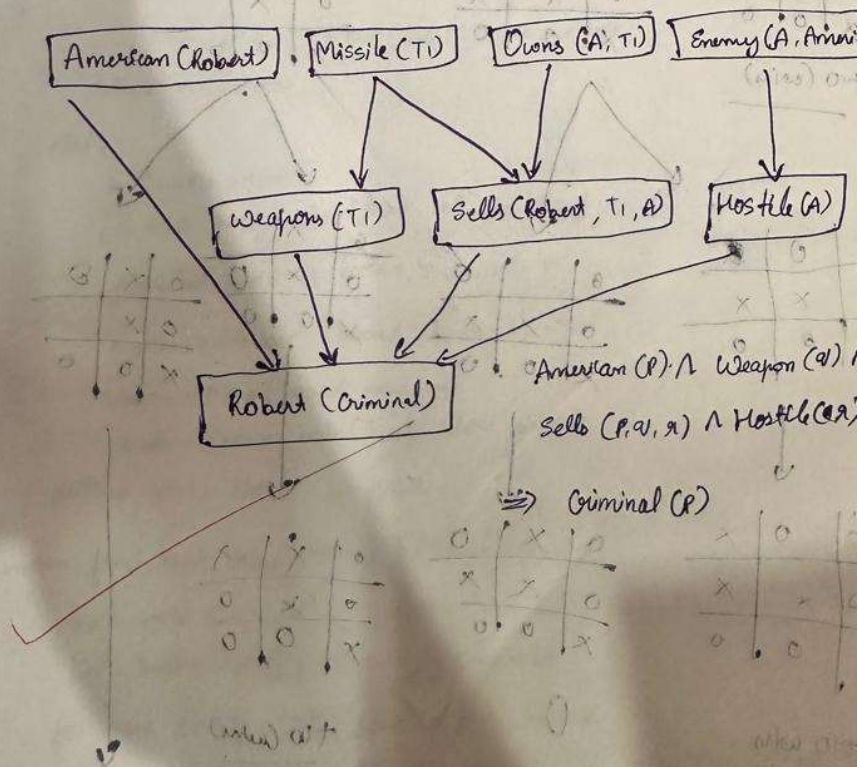 American (Robert) Missile (T1) Owns (A, T1) Enemy (A, Ameri
Weapons (T1) Sells (Robert, T1, A) Hostile (A)
Robert (Criminal)
American (P) ∧ Weapon (q) ∧
Sells (P, q, r) ∧ Hostile (r)
⇒ Criminal (P)